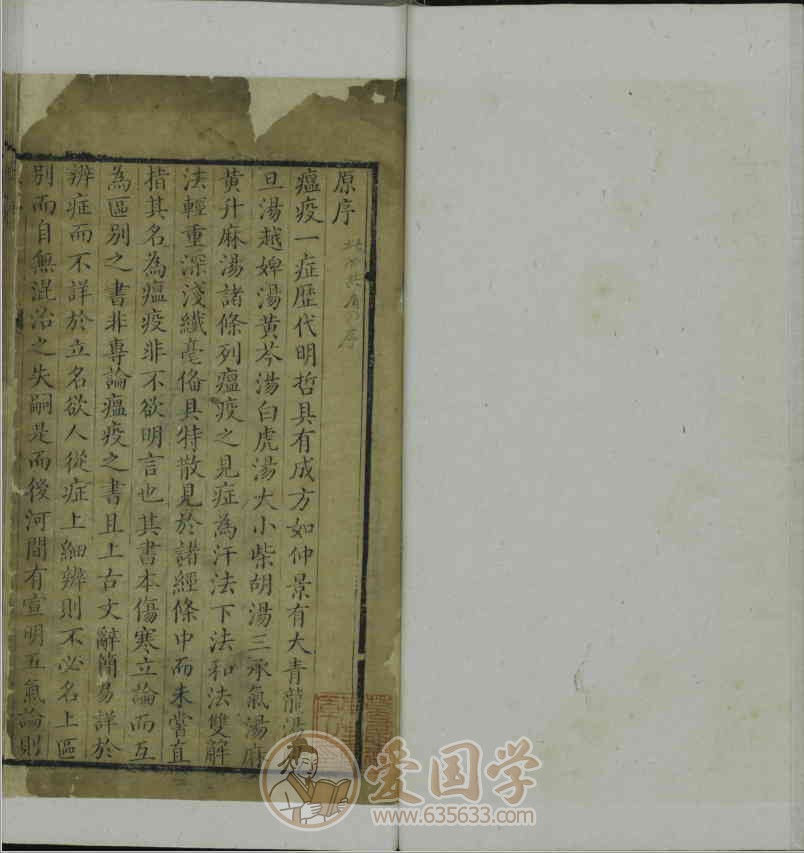 原序
瘟疫一症歷代明哲具有成方如仲景有大青龍湯
旦湯越婢湯黄芩湯白虎湯大小柴胡湯三承氣湯麻
黄升麻湯諸條列瘟疫之見症為汗法下法和法雙解
法輕重深淺纖毫俻具特散見於諸經條中而未嘗直
指其名為瘟疫非不欲明言也其書本傷寒立論而互
為區别之書非專論瘟疫之書且上古文辭簡易詳於
辨症而不詳於立名欲人從症上細辨則不必名上區
别而自無混治之失嗣是而後河間有宣明五氣論則
爱国学
www.635633.com